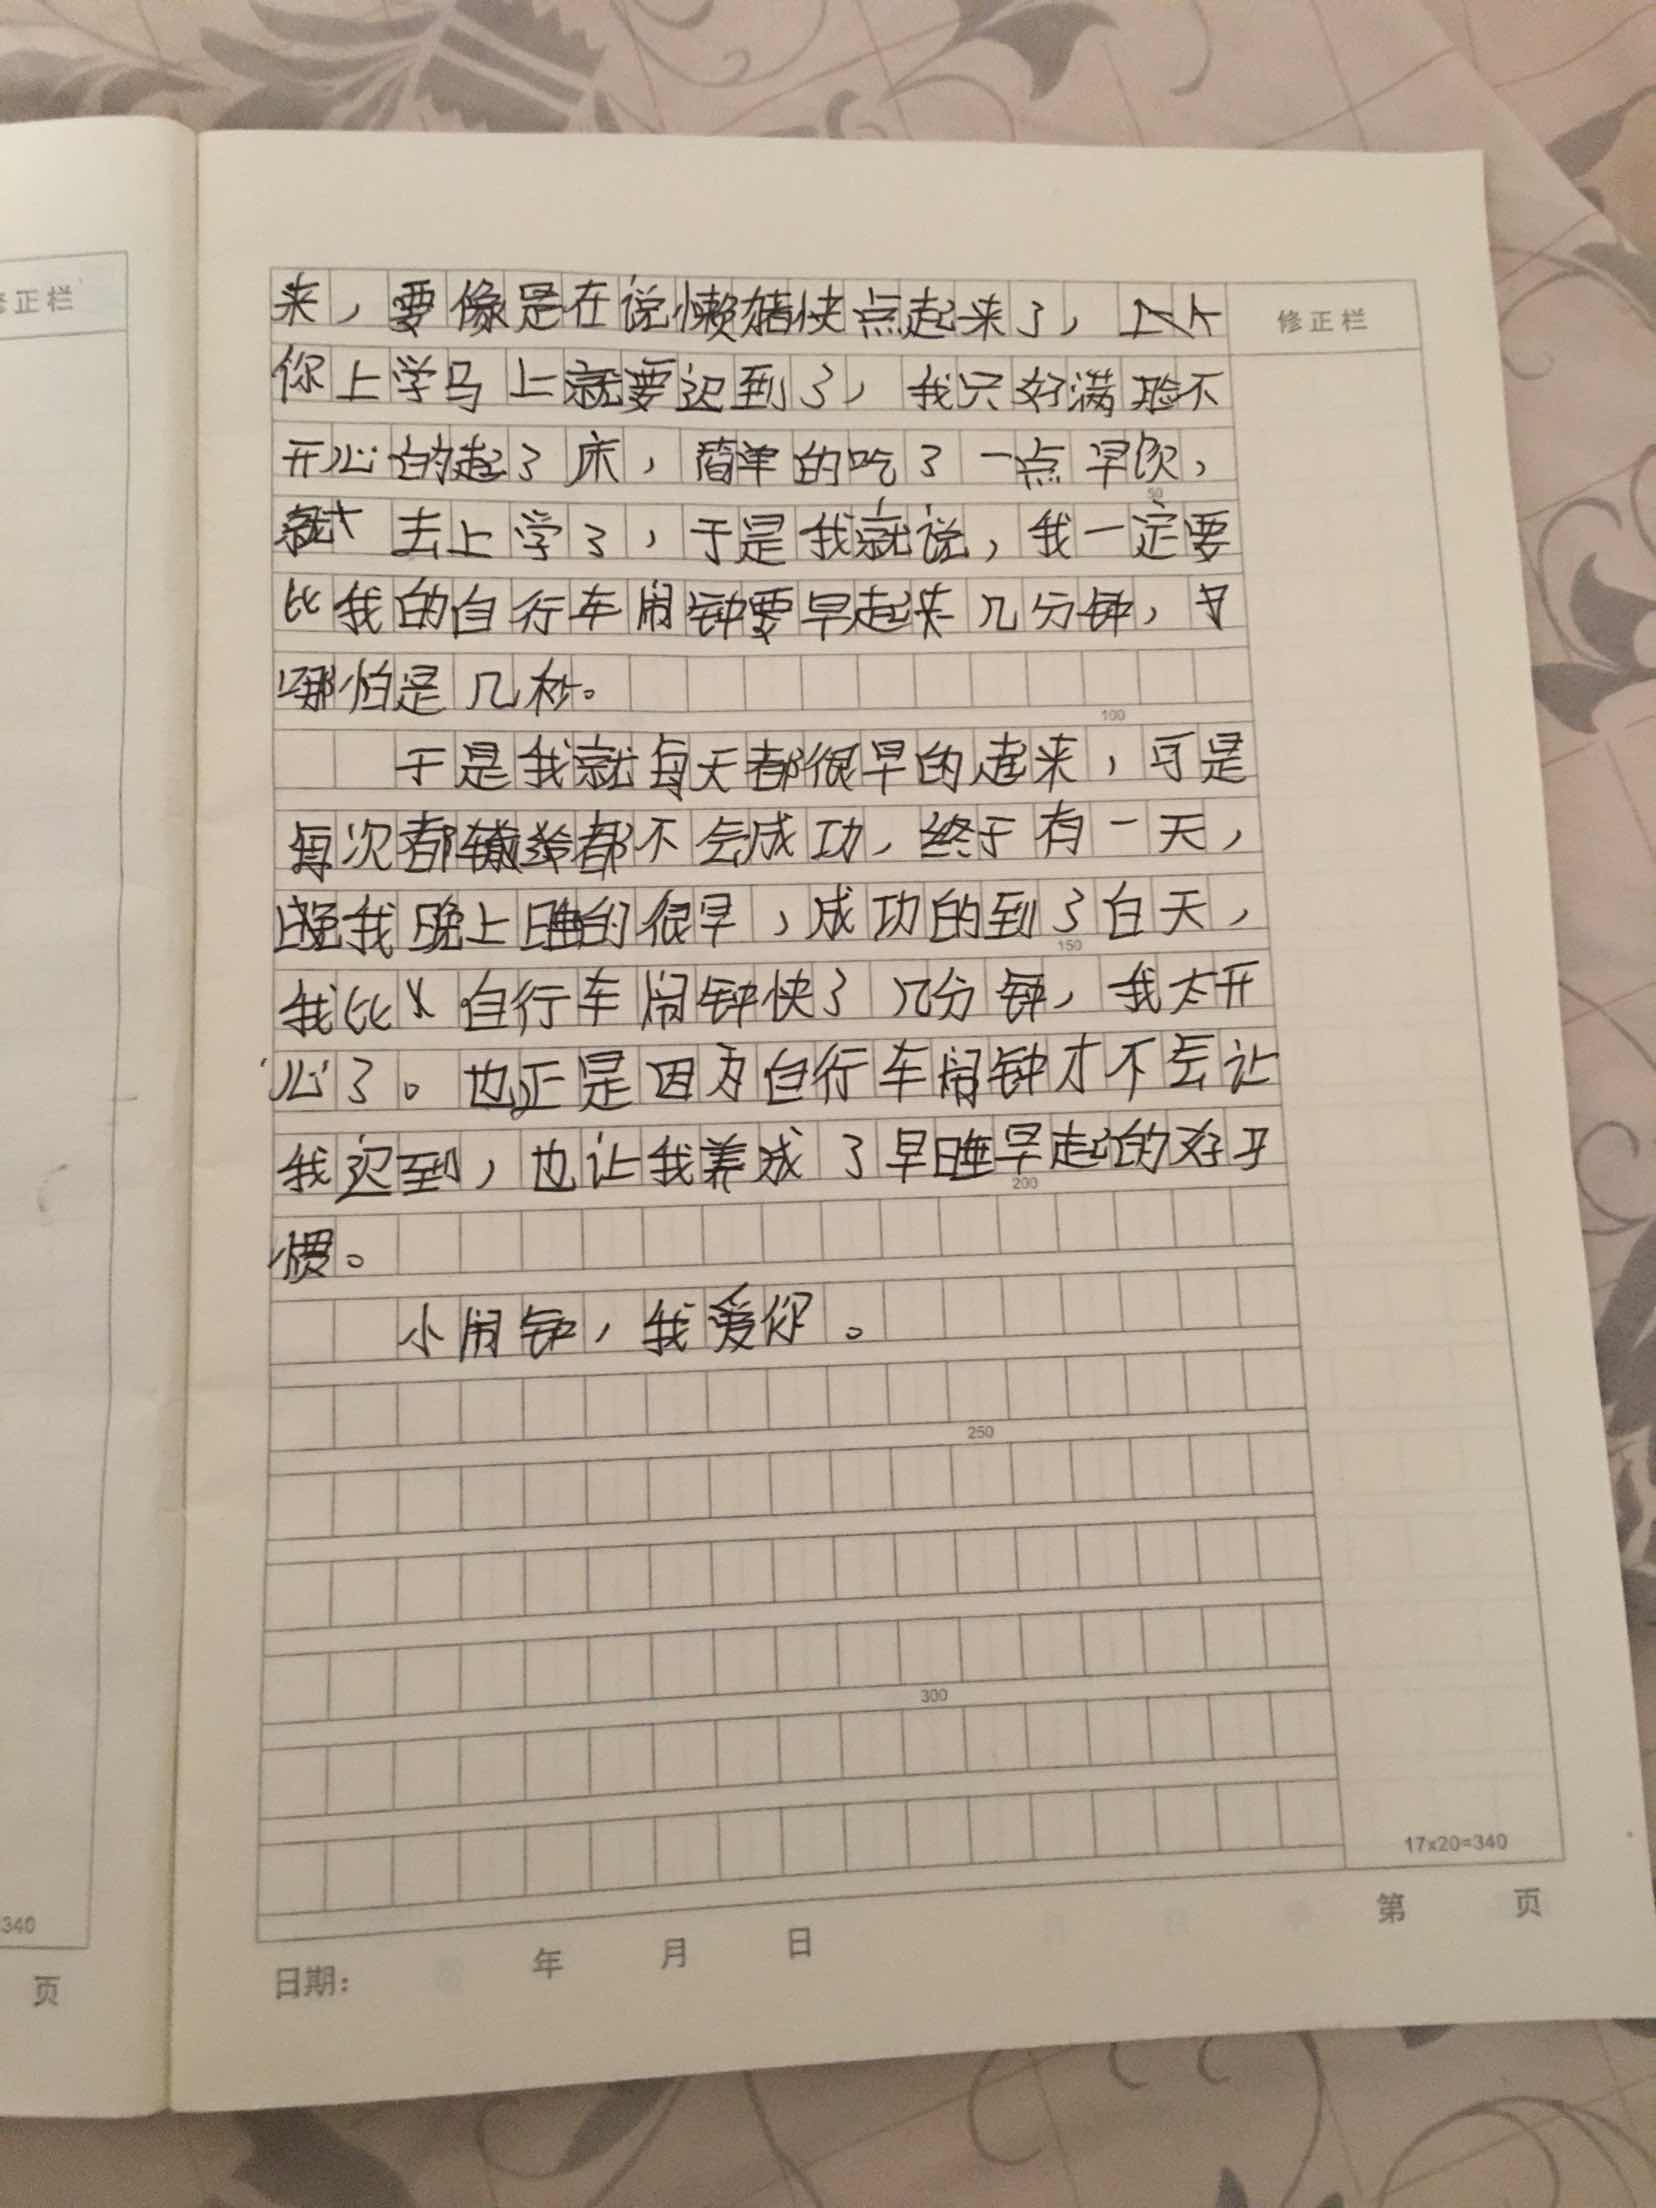 修正栏
来，要像是在说懒猪快点起来了，
你上学马上就要迟到了，我只好满脸不
开心的起了床，简单的吃了一点早饭，
50
就去上学了，于是我就说，我一定要
比我的自行车闹钟要早起来几分钟，
哪怕是几秒。
100
于是我就每天都很早的起来，可是
每次都不会成功，终于有一天，
我晚上睡的很早，成功的到了白天，
150
我比自行车闹钟快了几分钟，我太开
心了。也正是因为自行车闹钟才不会让
我迟到，也让我养成了早睡早起的好习
200
惯。
小闹钟，我爱你。
250
300
17x20=340
第 页
日期： 年 月 日
正栏
340
页